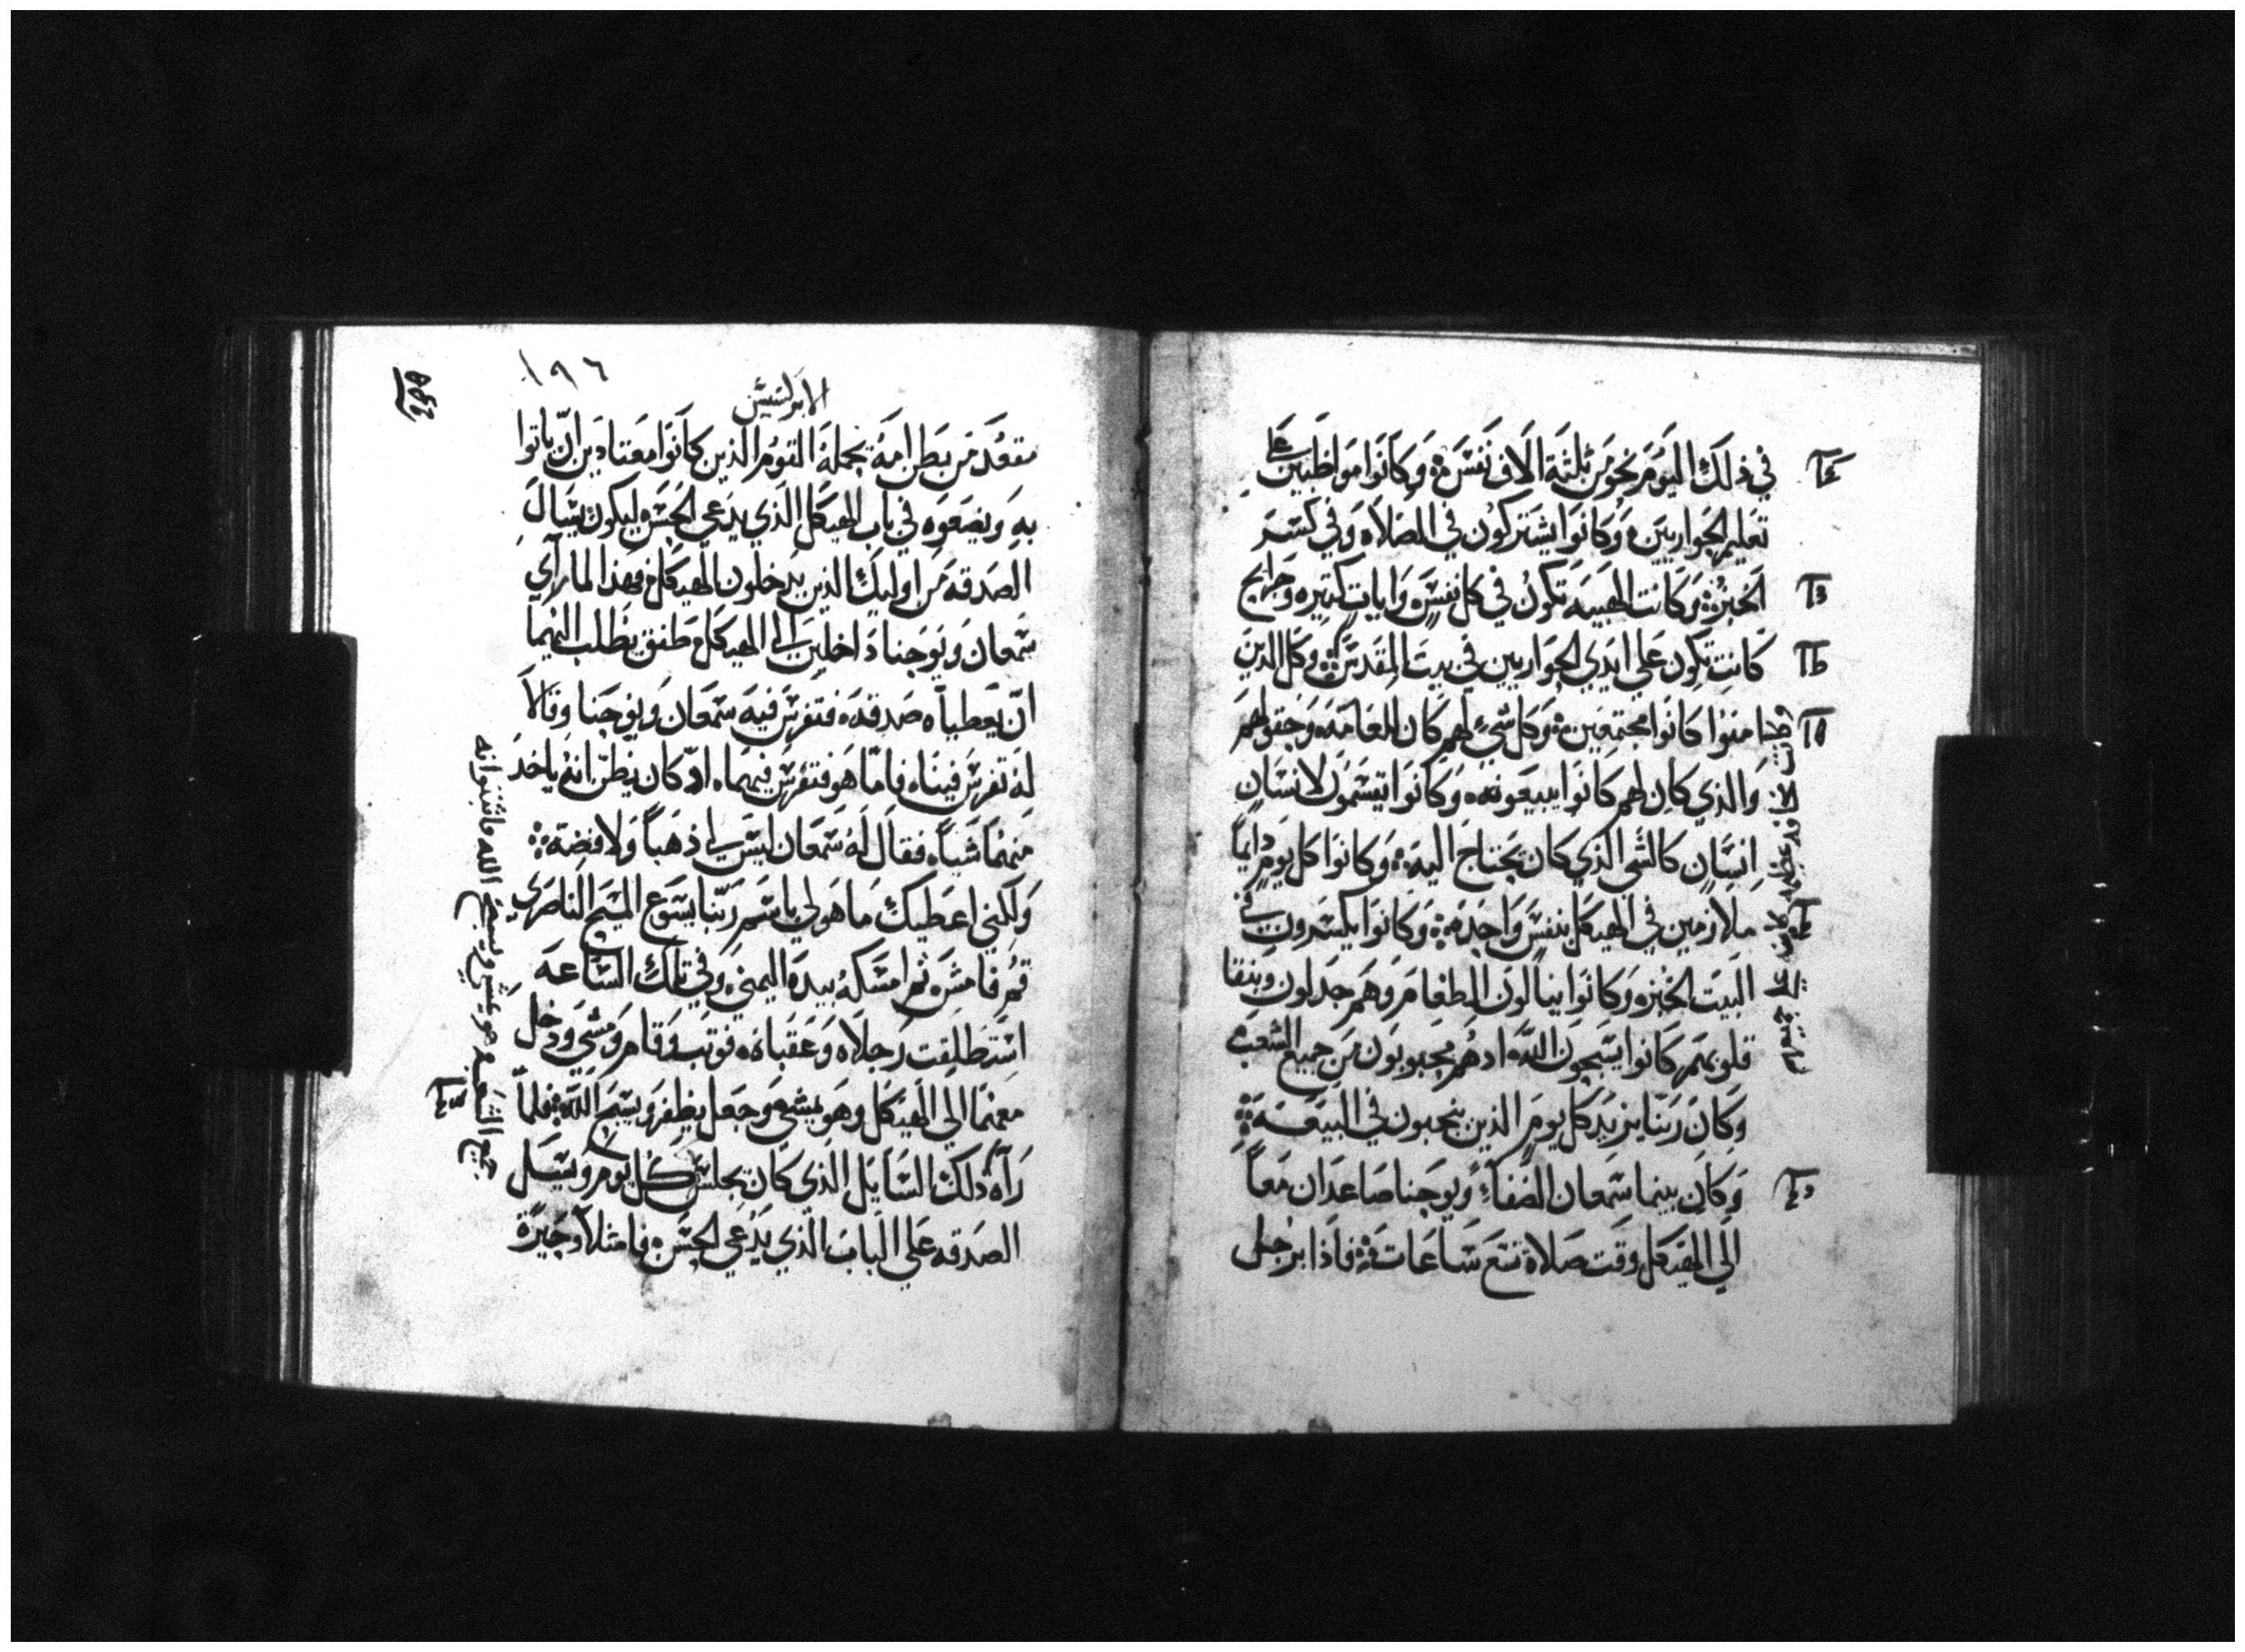 في ذلك اليوم نحو من ثلثة الاف نفس وكانوا مواظبين على
تعليم الحواريين وكانوا يشتركون في الصلاه وفي كسر
الخبز وكانت الهيبه تكون في كل نفس وايات كتيره وجرايح
كانت تكون على ايدي الحواريين في بيت المقدس وكل الذين
امنوا كانوا مجتمعين وكل شيء لهم كان للعامه وحقولهم
والذي كان لهم كانوا يبيعونه وكانوا يقسمون لانسان
انسان كالشي الذي كان يحتاج اليه وكانوا كل يوم دايماً
ملازمين في الهيكل بنفس واحده وكانوا يكسرون في
البيت الخبز وكانوا ينالون الطعام وهم جدلون وبنقا
قلوبهم كانوا يسبحون الله اد هم محبوبون من جميع الشعب
وكان ربنا يزيد كل يوم الذين ينجبون في البيعه
وكان بينما شمعان الصفاء ويوحنا صاعدان معاً
الى الهيكل وقت صلاة تسع ساعات فاذا برجل
١٩٦
الابركسيس
مقعد من بطن امه يحمله القوم الذين كانوا معتادين ان ياتوا
به ويضعوه في باب الهيكل الذي يدعي الحسن ليكون يسال
الصدقه من اوليك الذين يدخلون الهيكل فهذا لما راي
شمعان ويوحنا داخلين الى الهيكل طفق يطلب اليهما
ان يعطياه صدقه فتفرس فيه شمعان ويوحنا وقالا
له تفرس فينا فاما هو فتفرس فيهما اد كان يظن انه ياخد
منهما شياً فقال له شمعان ليس لي ذهباً ولا فضة
ولكني اعطيك ما هو لي باسم ربنا يسوع المسيح الناصري
قم فامش ثم امسكه بيده اليمني وفي تلك الساعه
استطلقت رجلاه وعقباه فوتب وقام ومشي ودخل
معهما الي الهيكل وهو يمشي وجعل يطفر ويسبح الله فلما
راه ذلك السايل الذي كان يجلس كل يوم ويسل
الصدقه علي الباب الذي يدعي الحسن فامتلا وحيرة
جميع الشعب وهو يمشي ويسبح الله فاثبتوا انه